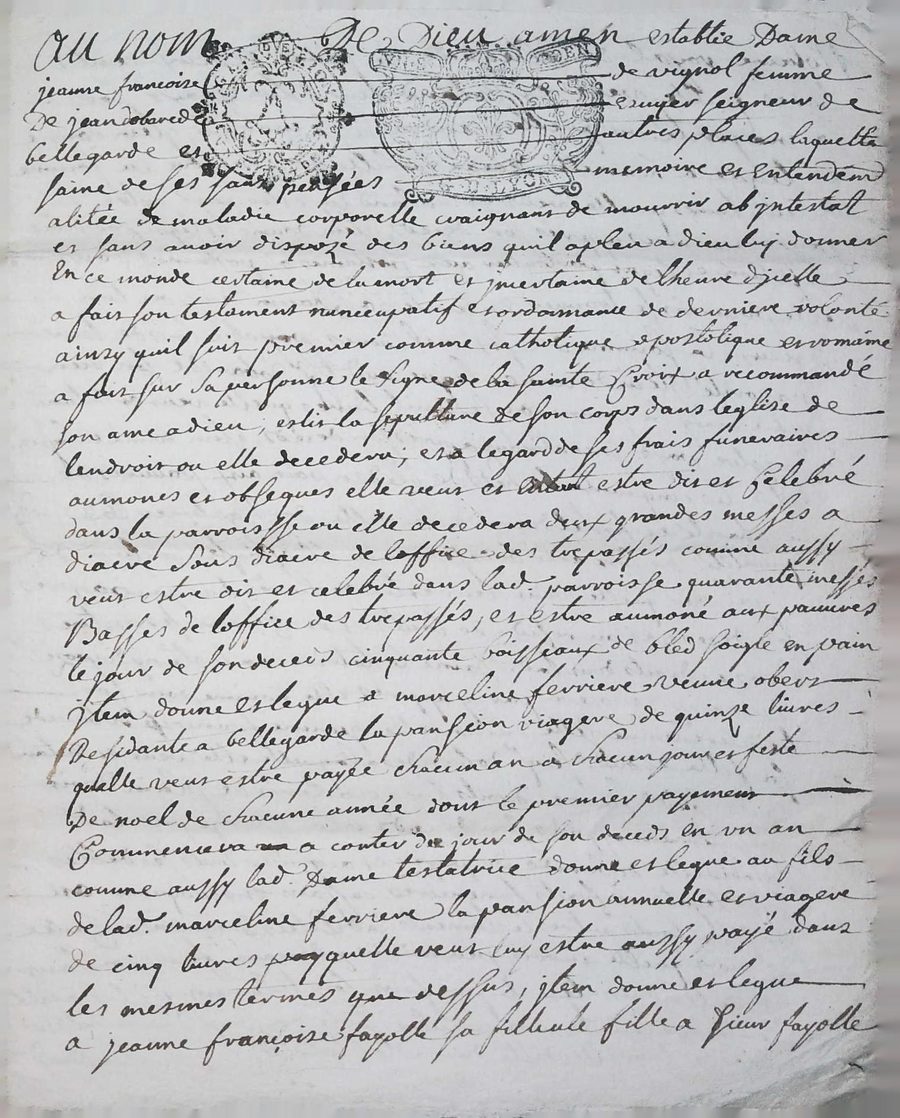 au nom De Dieu amen establie Dame
jeanne francoise de vignol femme
De jean escuyer seigneur de
bellegarde et autres places laquelle
saine de ses sans pensées memoire et entendem
alitée de maladie corporelle craignant de mourrir ab jntestat
et sans avoir disposé des biens quil a pleu a dieu luy donner
En ce monde certaine de la mort et jncertaine de lheure dicelle
a fait son testament nuncupatif et ordonnance de derniere volonté
ainsy quil suit premier comme catholique apostolique et romaine
a fait sur sa personne le signe de la sainte Croix a recommandé
son ame a dieu, eslit la sepulture de son corps dans leglise de
lendroit ou elle decedera; et a legard de ses frais funeraires
aumones et obseques elle veut et entend estre dit et Celebré
dans la parroisse ou elle decedera deux grandes messes a
diacre sous diacre de loffice des trepassés comme aussy
veut estre dit et celebré dans lad. parroisse quarante messes
Basses de loffice des trepassés, et estre aumoné aux pauvres
le jour de son deceds cinquante boissiaux de bled soigle en pain
jtem donne et legue a marceline ferriere veuve obert
Residante a bellegarde la pansion viagere de quinze livres
qualle veut estre payée chacun an a chacun jour et feste
De noel de chacune année dont le premier payement
Commencera a conter du jour de son deceds en un an
comme aussy lad. Dame testatrice donne et legue au fils
de lad. marceline ferriere la pansion annuelle et viagere
de cinq livres quelle veut luy estre aussy payé dans
les mesmes termes que dessus, jtem donne et legue
a jeanne françoise fayolle sa filleule fille a sieur fayolle